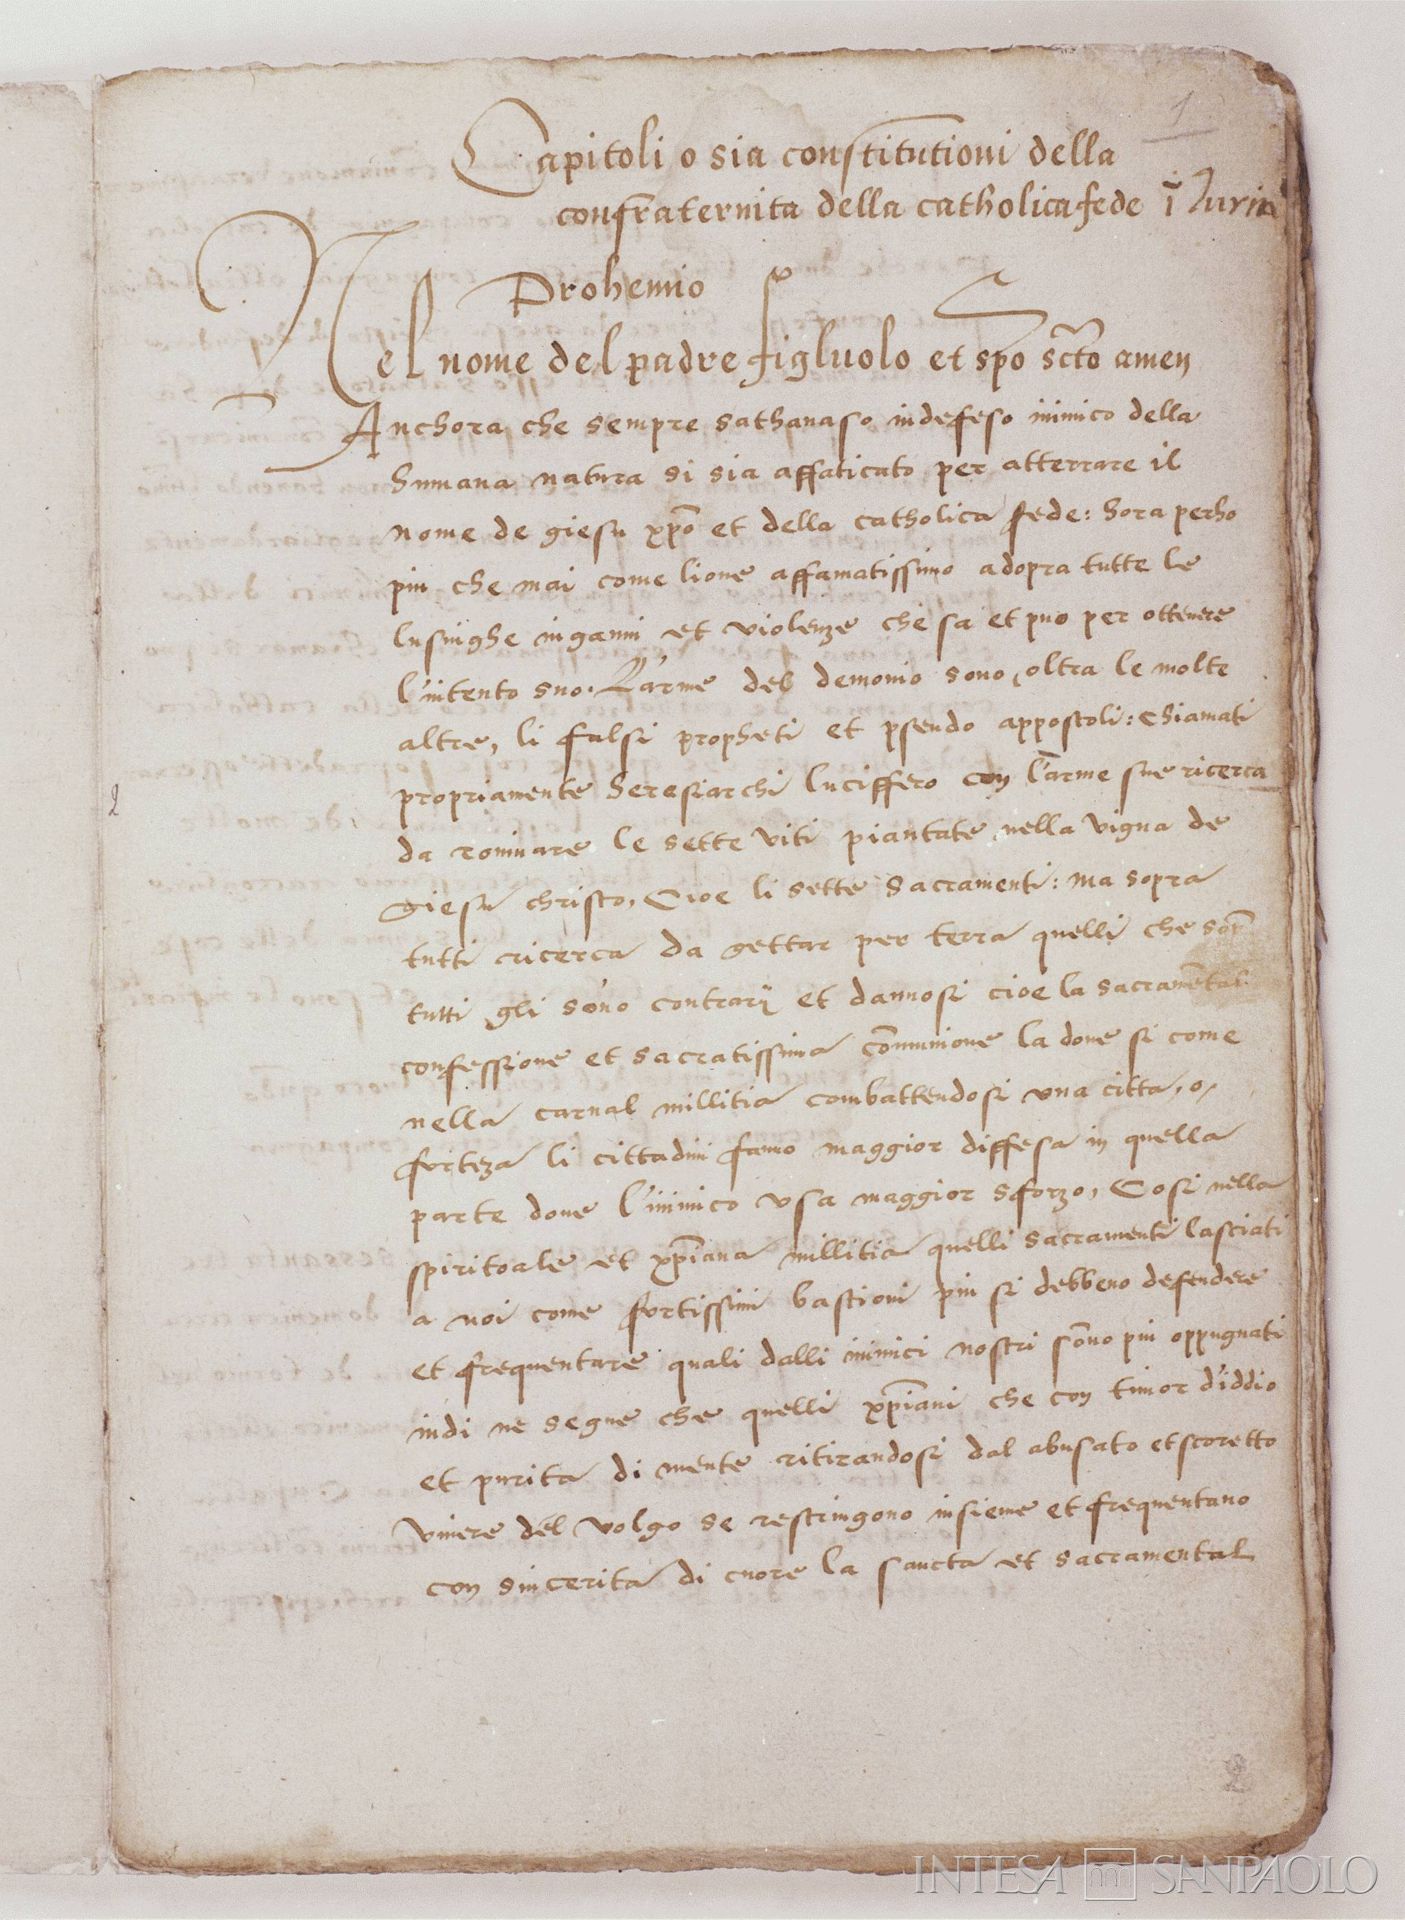 1
Capitoli o sia constitutioni della
confraternita della catholica fede ī Turin
Prohemio
Nel nome del padre figluolo et spo scto amen
Anchora che sempre sathanaso indefeso inimico della
humana natura si sia affaticato per atterrare il
nome de giesu xpo et della catholica fede: hora perho
piu che mai come lione affamatissimo adopra tutte le
lusinghe inganni et violenze che sa et puo per ottenere
l'intento suo. L'arme del demonio sono, oltra le molte
altre, li falsi propheti et pseudo appostoli: chiamati
propriamente heresiarchi luciffero con l'arme sue ricerca
da rominare le sette viti piantate nella vigna de
giesu christo, Cioe li sette sacramenti: ma sopra
tutti ricerca da gettar per terra quelli che sopra
tutti gli sono contrarij et dannosi cioe la sacramental
confessione et sacratissima cōmunione la doue si come
nella carnal millitia combattendosi una citta, o,
forteza li cittadini fanno maggior diffesa in quella
parte doue l'inimico usa maggior sforzo, Cosi nella
spiritoale et xpiana millitia quelli sacramenti lasciati
a noi come fortissimi bastioni piu si debbeno defendere
et frequentare quali dalli inimici nostri sono piu oppugnati
indi ne segue che quelli xpiani che con timor d'iddio
et purita di mente ritirandosi dal abusato et scoretto
viuere del volgo se restringono insieme et frequentano
con sincerita di cuore la sancta et sacramental
2
INTESA SANPAOLO